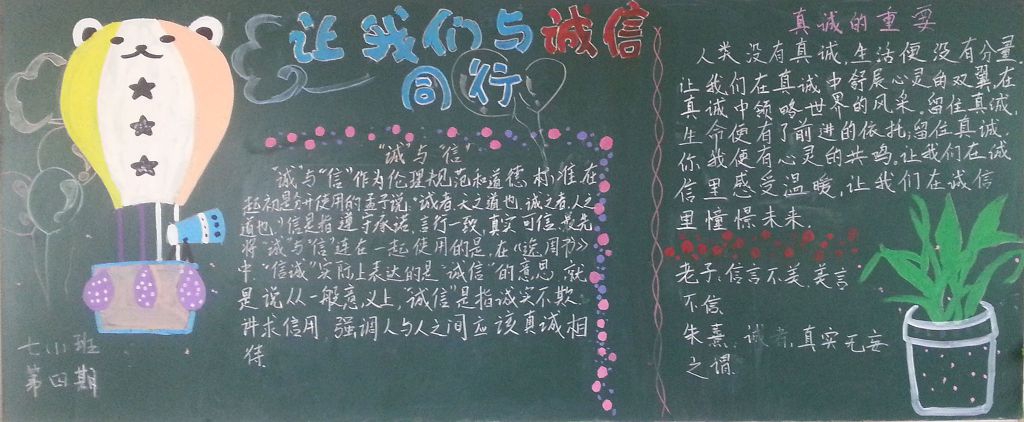 让我们与诚信
同行
"诚"与"信"
"诚"与"信"作为伦理规范和道德标准在
起初是分开使用的.孟子说:"诚者,天之道也,诚之者,人之
道也."信是指遵守承诺,言行一致,真实可信.最先
将"诚"与"信"连在一起使用的是,在《逸周书》
中."信诚"实际上表达的是"诚信"的意思.就
是说从一般意义上,"诚信"是指诚实不欺
讲求信用,强调人与人之间应该真诚相
待.
七(八)班
第四期
真诚的重要
人类没有真诚,生活便没有分量.
让我们在真诚中舒展心灵的双翼在
真诚中领略世界的风采.留住真诚,
生命便有了前进的依托,留住真诚.
你、我便有心灵的共鸣.让我们在诚
信里感受温暖,让我们在诚信
里憧憬未来.
老子:信言不美,美言
不信.
朱熹:诚者,真实无妄
之谓.